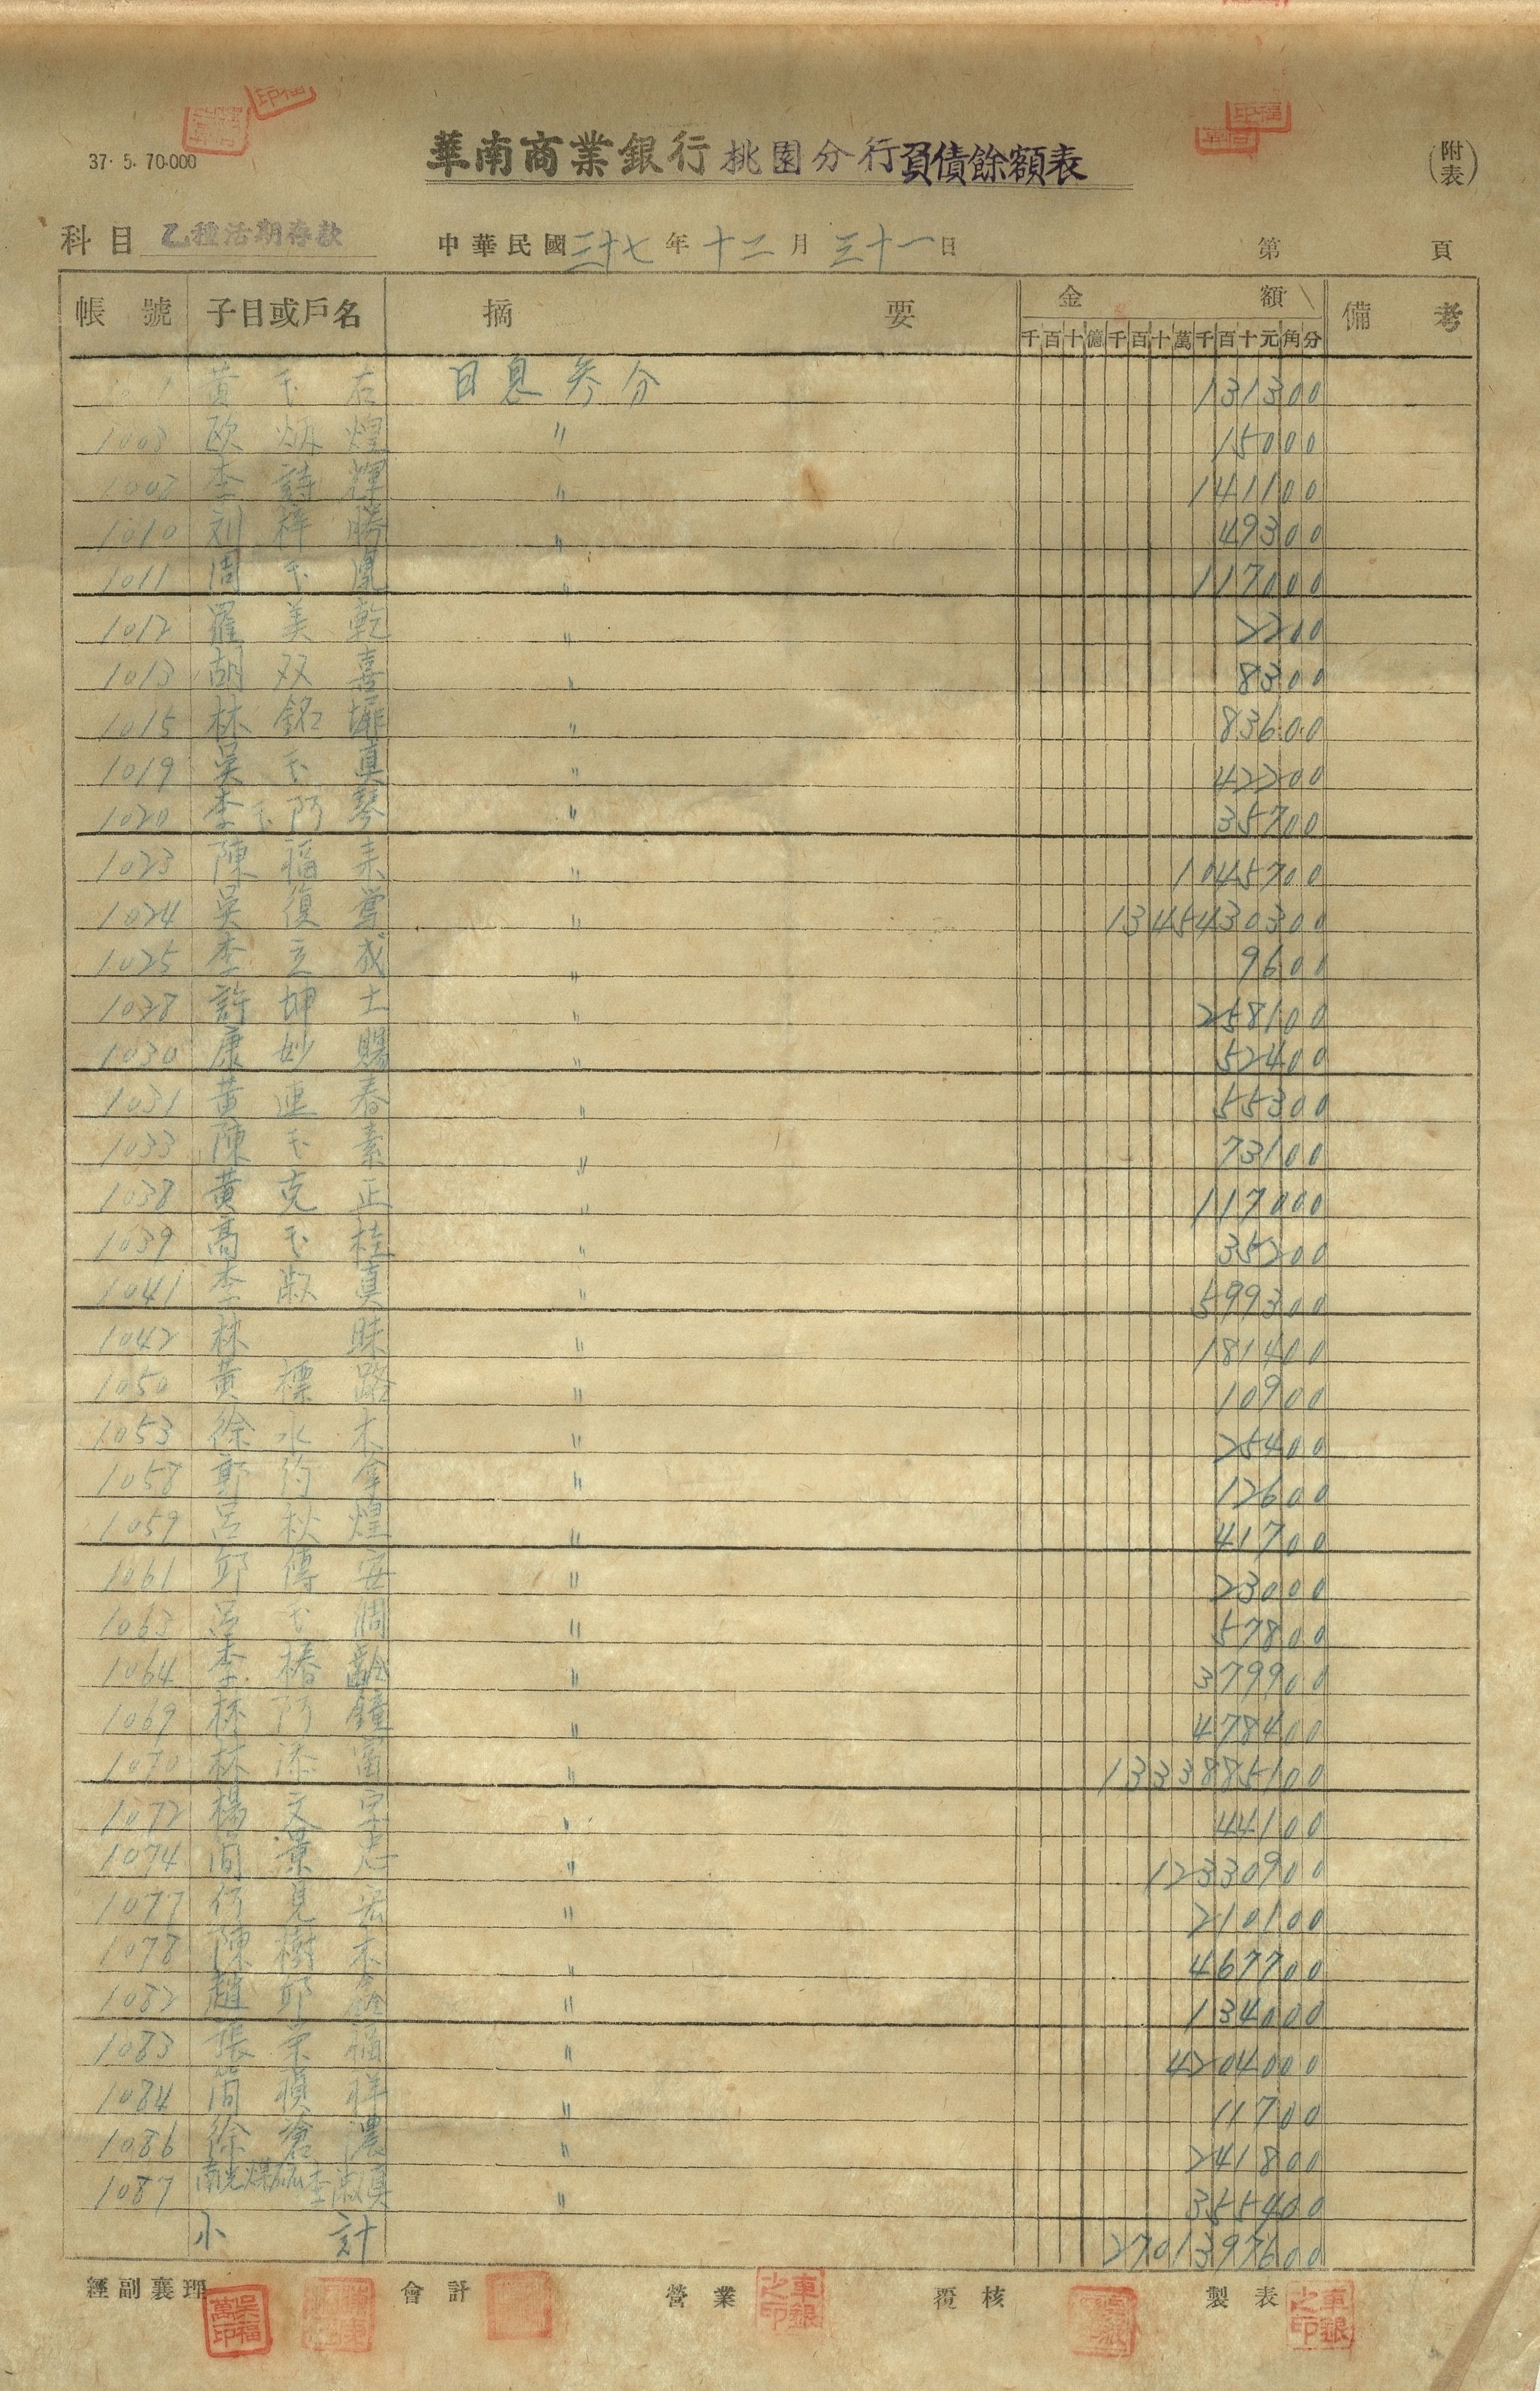 37. 5. 70.000
華南商業銀行桃園分行負債餘額表
(附表)
科目 乙種活期存款 中華民國三十七年十二月三十一日 第 頁
帳號 子目或戶名 摘要 金額 備考
千百十億千百十萬千百十元角分
黃玉 日息參分 131300
1008 歐炳煌 〃 15000
李詩輝 〃 141100
1010 刘祥勝 〃 49300
1011 周玉鳳 〃 117000
1012 羅美乾 〃 2200
1013 胡双喜 〃 8300
1015 林銘 〃 83600
1019 吳玉真 〃 42200
1020 李玉阿琴 〃 35700
1023 陳福來 〃 1045700
1024 吳復 〃 1345430300
1025 李立成 〃 9600
1028 許坤土 〃 258100
1030 康妙賜 〃 52400
1031 黃連春 〃 55300
1033 陳玉素 〃 73100
1038 黃克正 〃 117000
1039 高玉桂 〃 35200
1041 李淑真 〃 599300
1042 林 〃 181400
1050 黃標路 〃 10900
1053 徐水木 〃 25400
1058 郭約 〃 12600
1059 呂秋煌 〃 41700
1061 邱傳安 〃 23000
1063 呂玉 〃 57800
1064 李椿齡 〃 379900
1069 林阿鐘 〃 478400
1070 林添富 〃 1333885100
1072 楊文 〃 44100
1074 簡景 〃 12330900
1077 何見 〃 210100
1078 陳樹木 〃 467700
1082 趙邱 〃 134000
1083 張榮福 〃 4204000
1084 簡禎祥 〃 11700
1086 徐滄濃 〃 241800
1087 南光煤砿李淑真 〃 355400
小計 2701397600
經副襄理 會計 營業 覆核 製表
吳福萬印
車銀之印
車銀之印